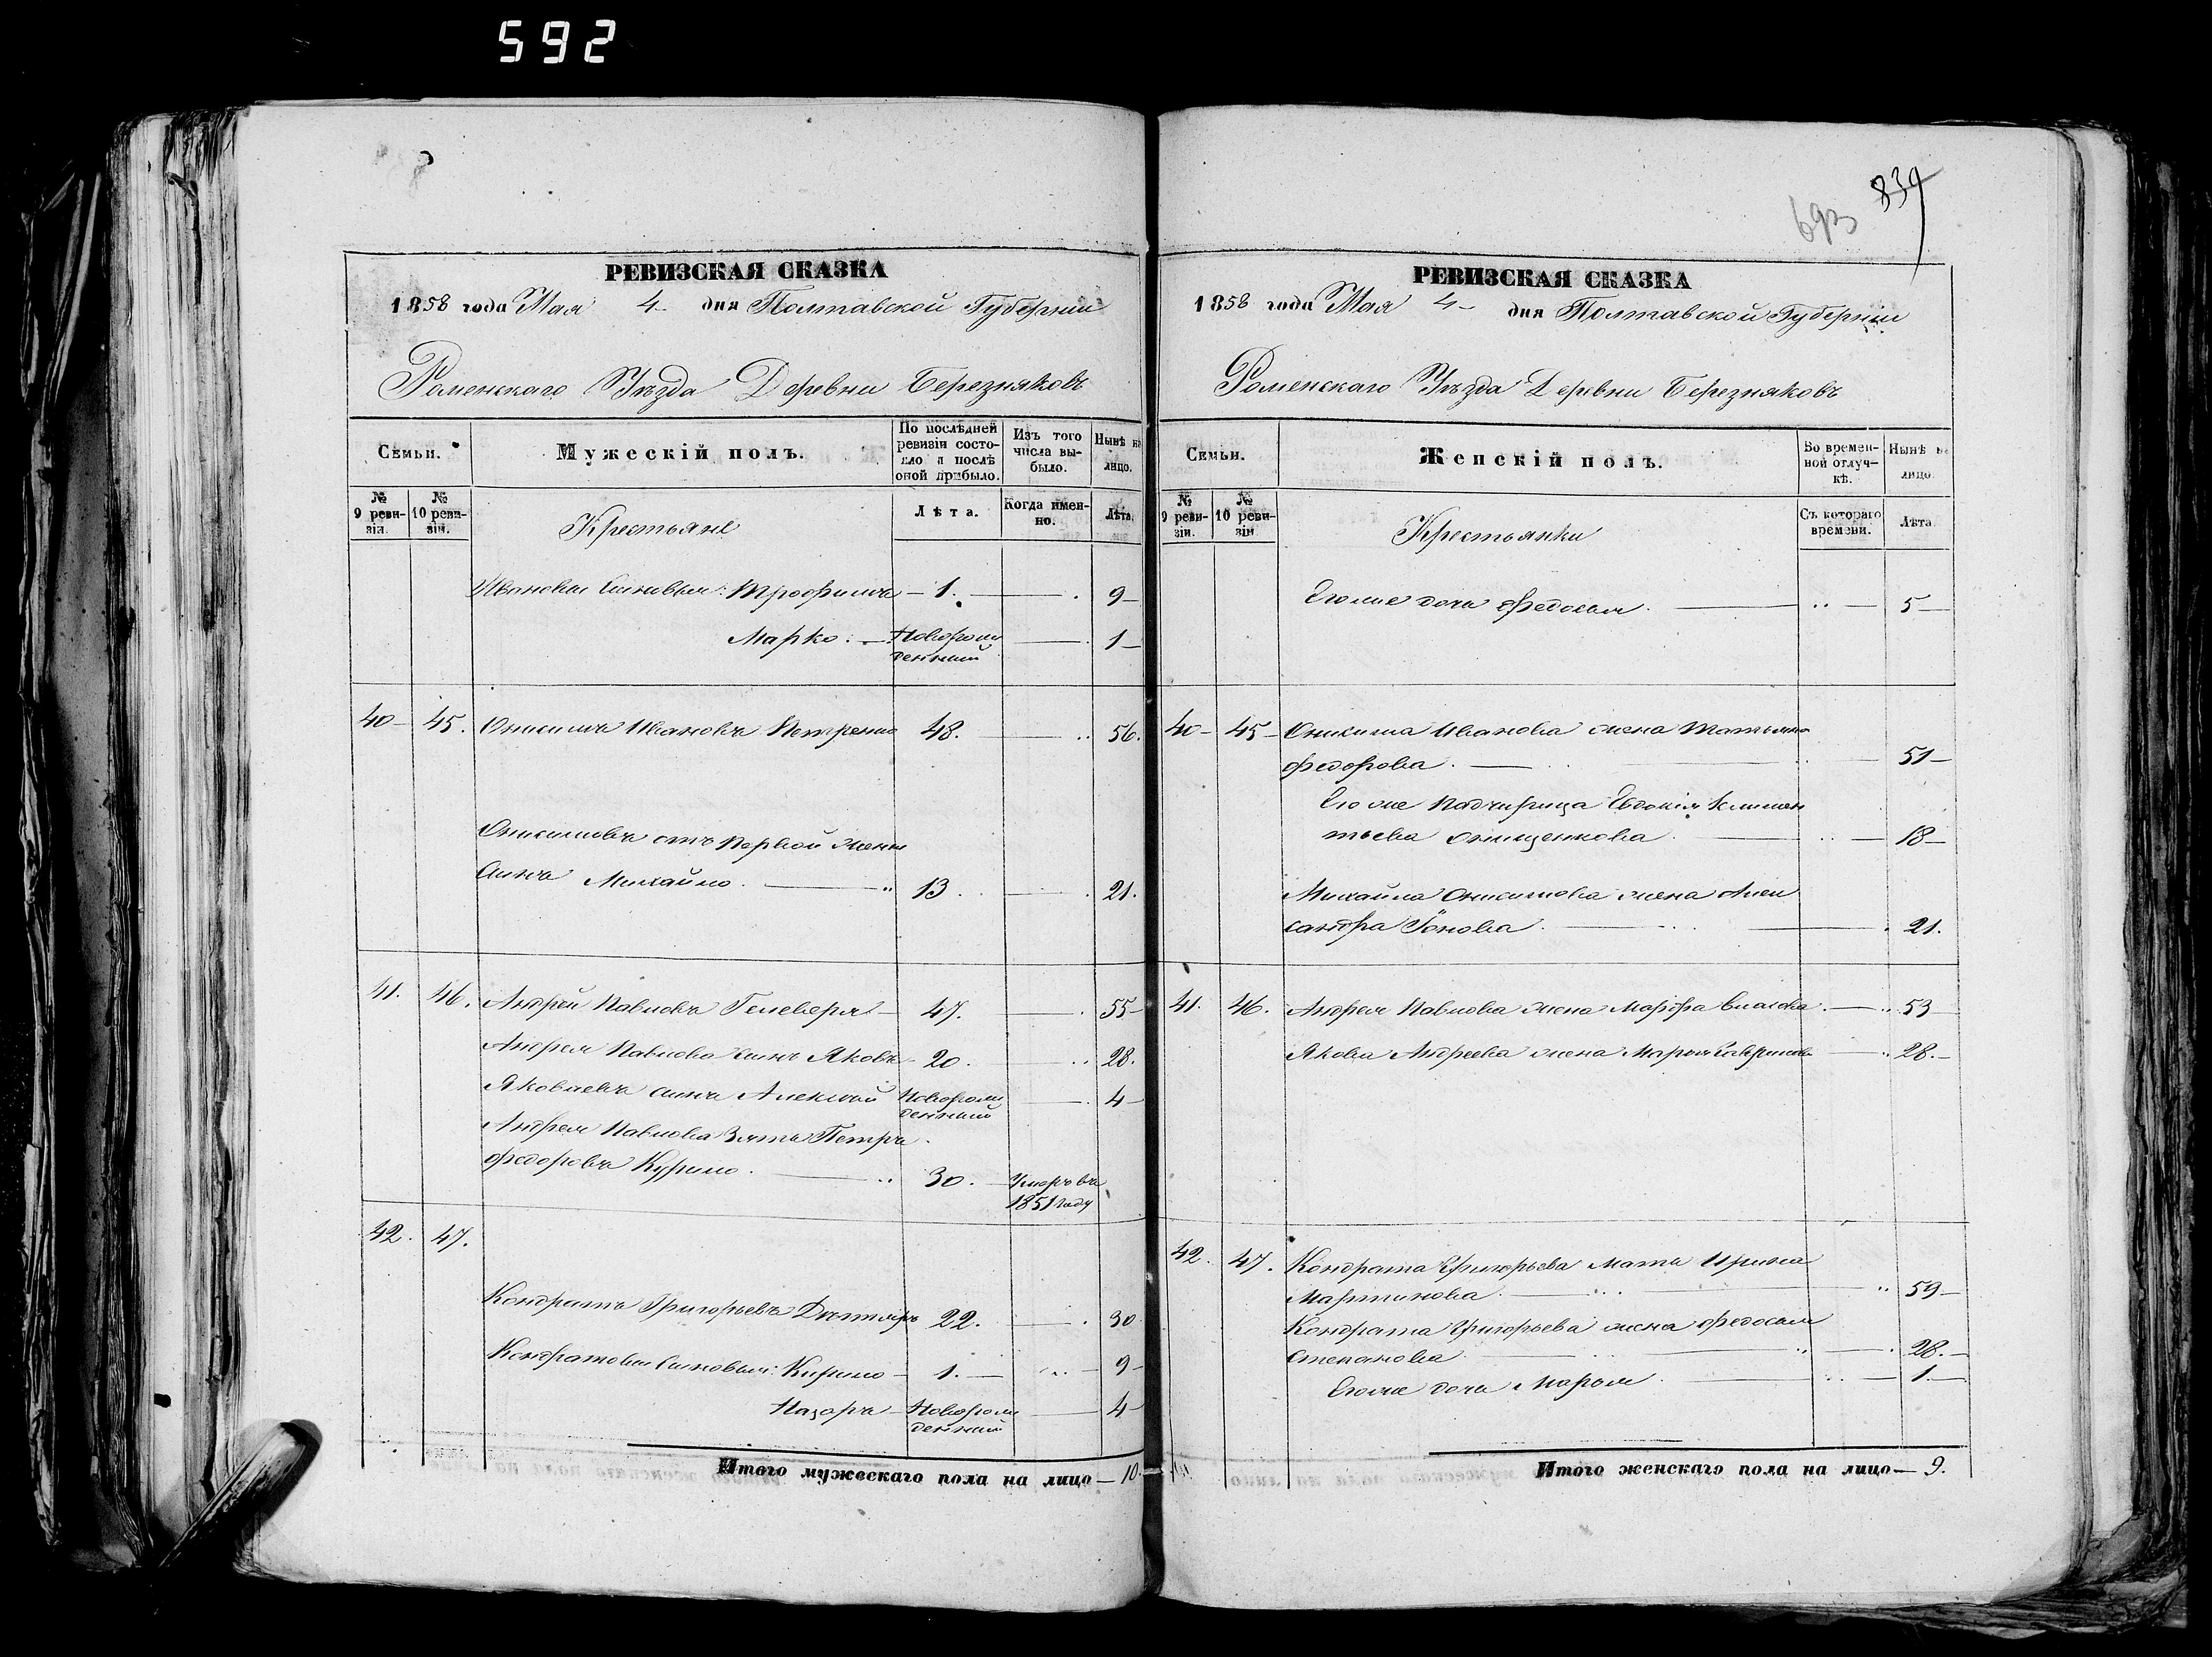 592
РЕВИЗСКАЯ СКАЗКА
1858 года Мая 4 дня Полтавской Губерніи
Роменскаго Уѣзда Деревни Березняковъ
Семьи.
Мужескій полъ.
По послѣдней ревизіи состояло и послѣ оной прибыло.
Изъ того числа выбыло.
Нынѣ на лицо.
№ 9 ревизіи.
№ 10 ревизіи.
Крестьяне
Лѣта.
Когда именно.
Лѣта.
Ивановы сыновья: Трофимъ — 1. — 9
Марко: — Новорожденный — 1
40 — 45. Онисимъ Ивановъ Петренко 48. — 56.
Онисимовъ отъ первой жены
сынъ Михайло. — 13. — 21.
41. 46. Андрей Павловъ Гелеверя — 47. — 55
Андрея Павлова сынъ Яковъ 20. — 28.
Яковлевъ сынъ Алексѣй Новорожденный — 4
Андрея Павлова Зять Петръ
Федоровъ Курило. — 30. Умеръ въ 1851 году
42. 47.
Кондратъ Григорьевъ Дегтяръ 22. — 30
Кондратовы сыновья: Кирило — 1. — 9
Назаръ — Новорожденный — 4
Итого мужескаго пола на лицо — 10.
693 839
РЕВИЗСКАЯ СКАЗКА
1858 года Мая 4 дня Полтавской Губерніи
Роменскаго Уѣзда Деревни Березняковъ
Семьи.
Женскій полъ.
Во временной отлучкѣ.
Нынѣ на лицо.
№ 9 ревизіи.
№ 10 ревизіи.
Крестьянки
Съ котораго времени.
Лѣта.
Его же дочь Федосья. — 5
40 — 45 — Онисима Иванова жена Татьяна
Федорова. — 51
Его же Падчирица Евдокія Климен
тьева Онищенкова — 18
Михайла Онисимова жена Алек
сандра Іонова. — 21.
41. 46. Андрея Павлова жена Марфа Власова. — 53
Якова Андреева жена Марья — 28.
42. 47. Кондрата Григорьева мать Ирина
Мартинова. — 59
Кондрата Григорьева жена Федосья
Степанова — 28.
Его же дочь Марья. — 1.
Итого женскаго пола на лицо — 9.